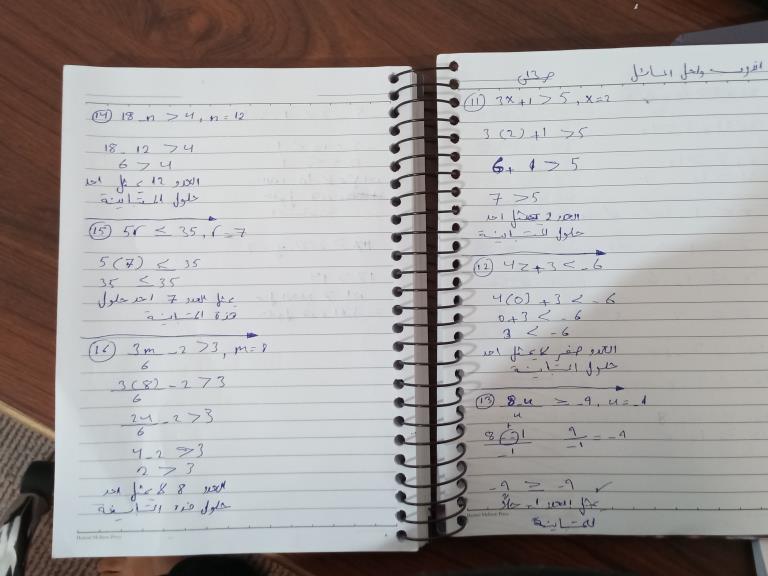 صـ١٣١
(11) 3x+1 > 5, x=2
3(2)+1 > 5
6+1 > 5
7 > 5
العدد 2 يمثل احد
حلول المتباينة
(12) 4z+3 < -6
4(0)+3 < -6
0+3 < -6
3 < -6
العدد صفر لا يمثل احد
حلول المتباينة
(13) 8-u/u ≥ -9, u=-1
8--1/-1 9/-1 = -9
-9 ≥ -9 ✓
يمثل العدد 1-
للمتباينة
(14) 18-n > 4, n=12
18-12 > 4
6 > 4
العدد 12 يمثل احد
حلول المتباينة
(15) 5r ≤ 35, r=7
5(7) ≤ 35
35 ≤ 35
يمثل العدد 7 احد حلول
هذة المتباينة
(16) 3m/6 - 2 > 3, m=8
3(8)/6 - 2 > 3
24/6 - 2 > 3
4-2 > 3
2 > 3
العدد 8 لا يمثل احد
حلول هذة المتباينة